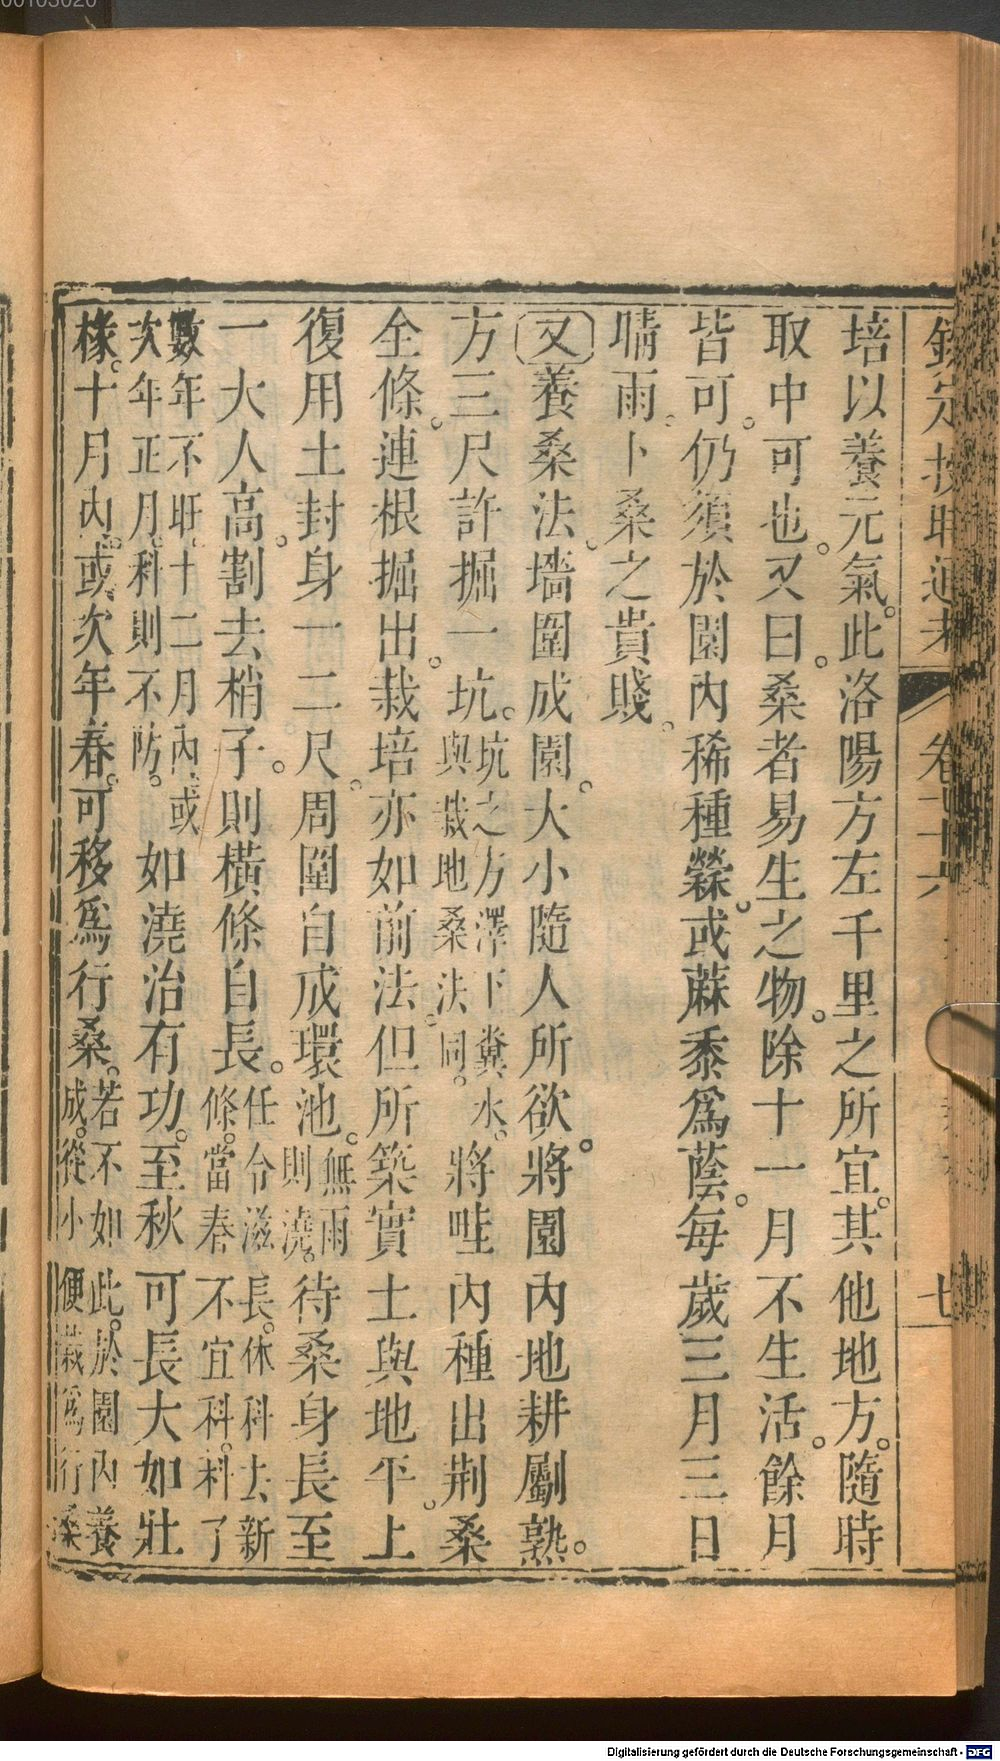 培以養元氣。此洛陽方左千里之所宜。其他地方。隨時
取中可也。又曰。桑者易生之物。除十一月不生活。餘月
皆可。仍須於園內稀種𦿆。或蔴黍爲蔭。每歲三月三日
晴雨。卜桑之貴賤。
又養桑法。墻圍成園。大小隨人所欲。將園內地耕劚熟。
方三尺許掘一坑。坑之方澤下糞水。與栽地桑法同。將畦內種出荆桑
全條。連根掘出。栽培亦如前法。但所築實土與地平。上
復用土封身一二尺。周圍自成環池。無雨則澆。待桑身長至
一大人高。割去梢子。則橫條自長。任令滋長。休科去新條。當春不宜科。科了
數年不旺。十二月內。或次年正月。科則不防。如澆治有功。至秋可長大如壯
椽。十月內。或次年春。可移爲行桑。若不如此。於園內養成。從小便栽爲行桑
欽定授時通考
卷
七
Digitalisierung gefördert durch die Deutsche Forschungsgemeinschaft - DFG
00103020